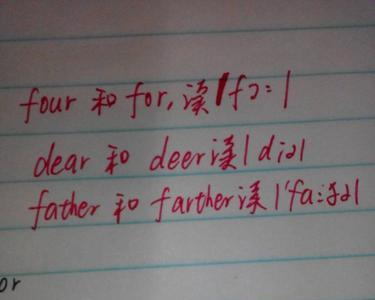 four 和 for, 读/fɔː/
dear 和 deer 读/diə/
father 和 farther 读/'fɑːðə/
or